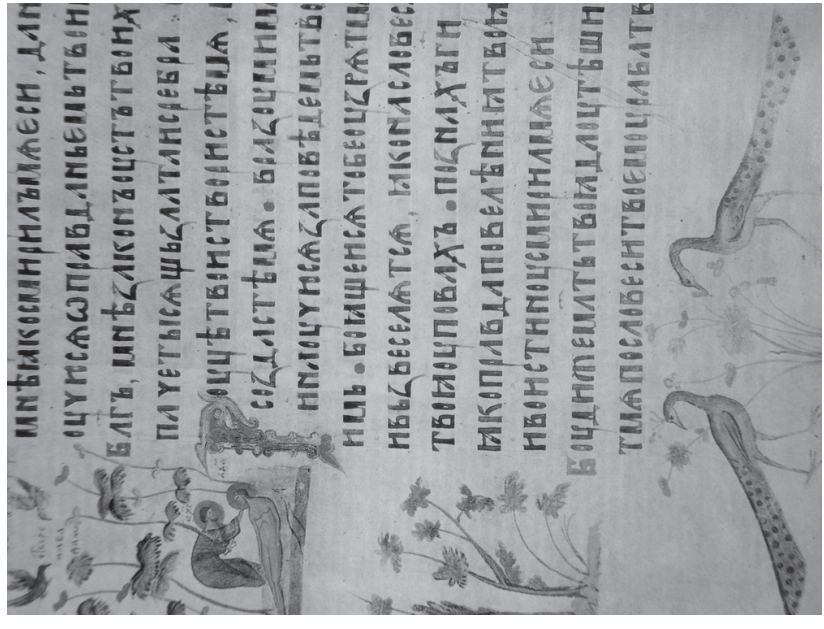 мнѣ ꙗко смирилъ мѧ еси, да н
оучюсѧ ѡправданьемь твоим
Блг҃ъ, мнѣ законъ оустъ твоих
паче тысѧщь злата и сребра:
Роуцѣ твои створистѣ мѧ,
создастѣ мѧ• вразоуми м
и наоучюсѧ заповѣдемъ тво
имь• боꙗщеисѧ тобе оузрѧть
и възвеселѧтсѧ, ꙗко на словес
твоꙗ оуповахъ• познахъ ги
ꙗко правда повелѣньꙗ твоꙗ
и воистиноу смирилъ мѧ еси
Боуди же млть твоꙗ да оутѣши
т мѧ по словеси твоемоу